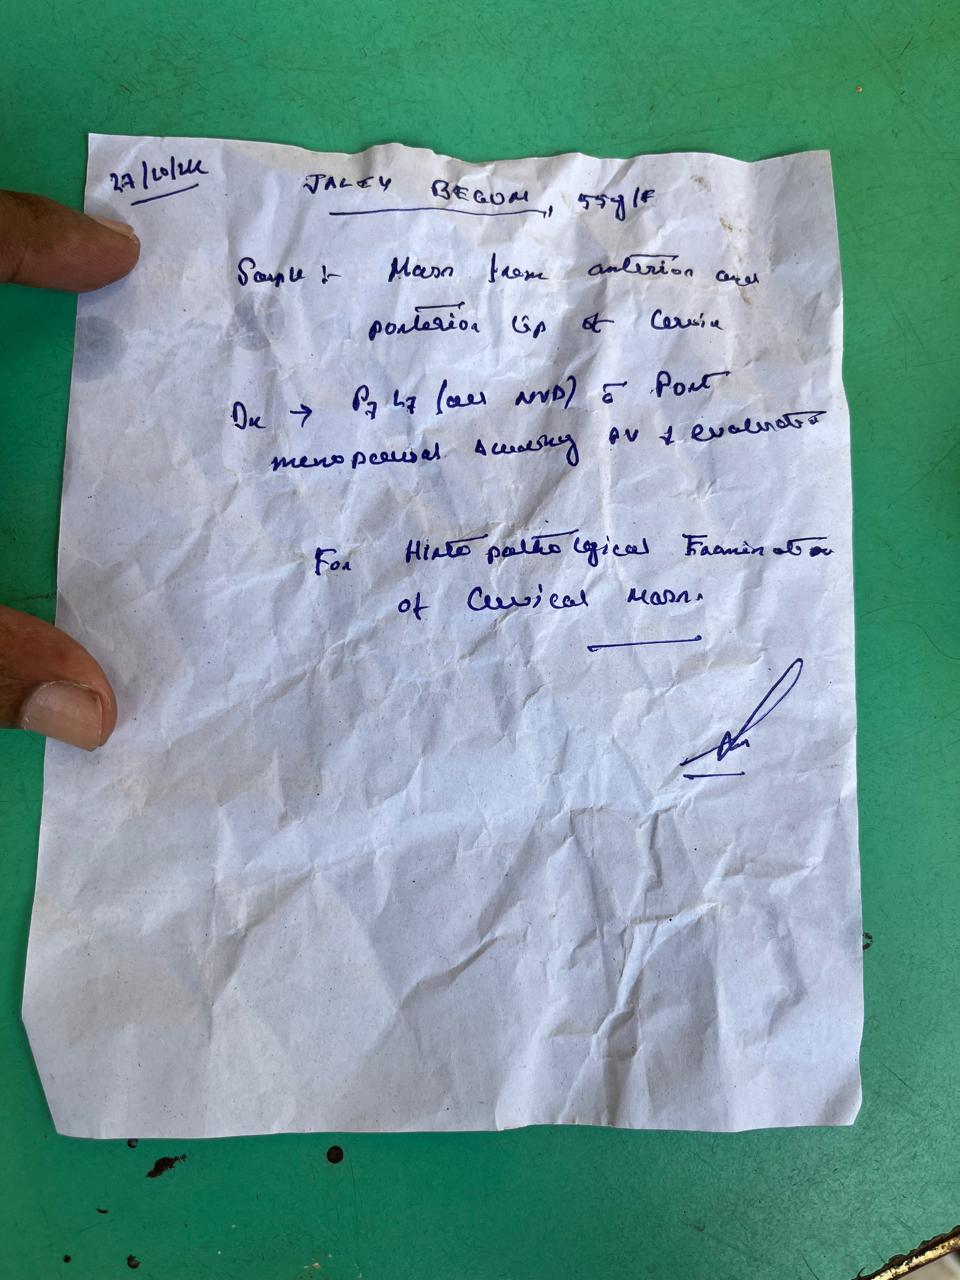 27/10/24
JALEY BEGUM, 55y/F
Sample :- Mass from anterior and
posterior lip of Cervix
Dx → P7 L7 (all NVD) c̄ Post
menopausal bleeding PV evaluation
For Histopathological Examination
of Cervical Mass.